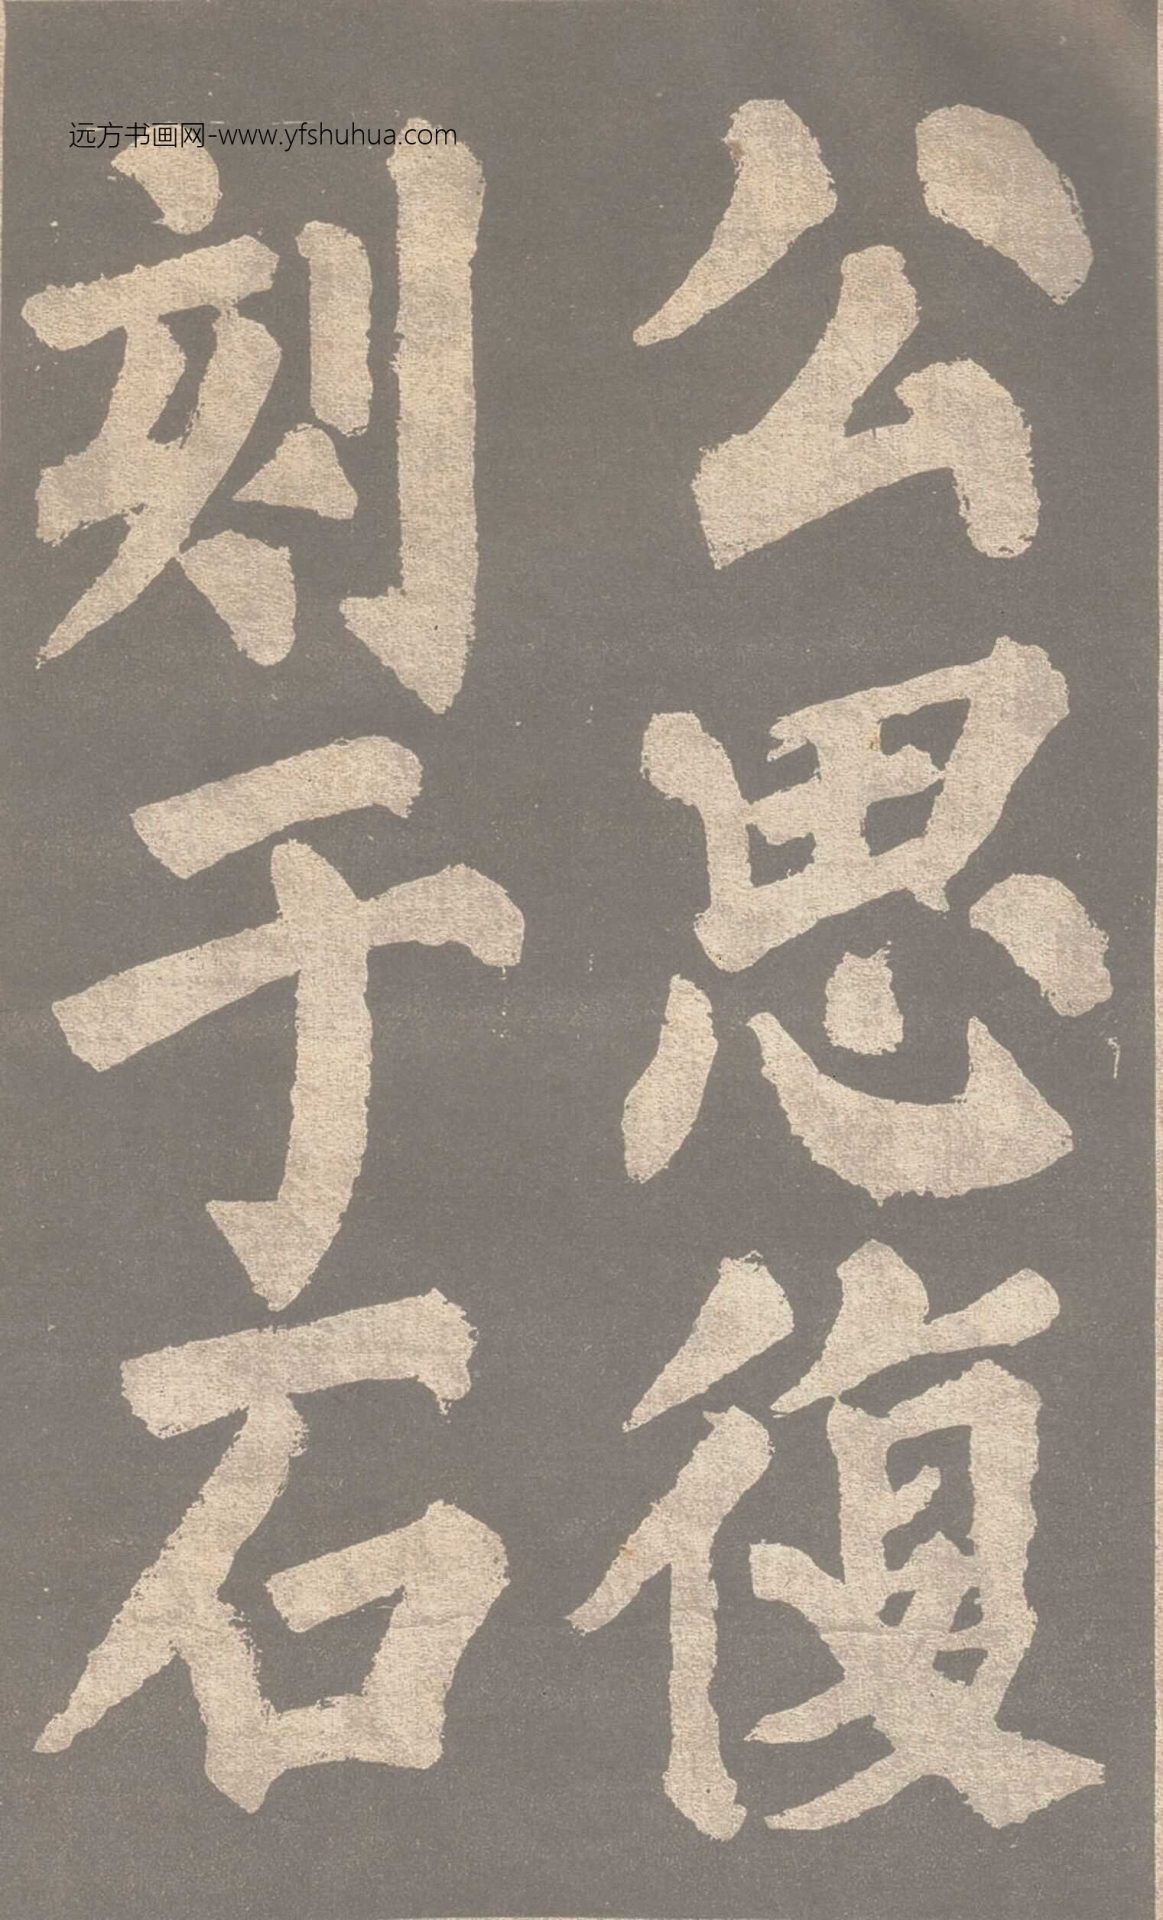 远方书画网-www.yfshuhua.com
公思復
刻于石